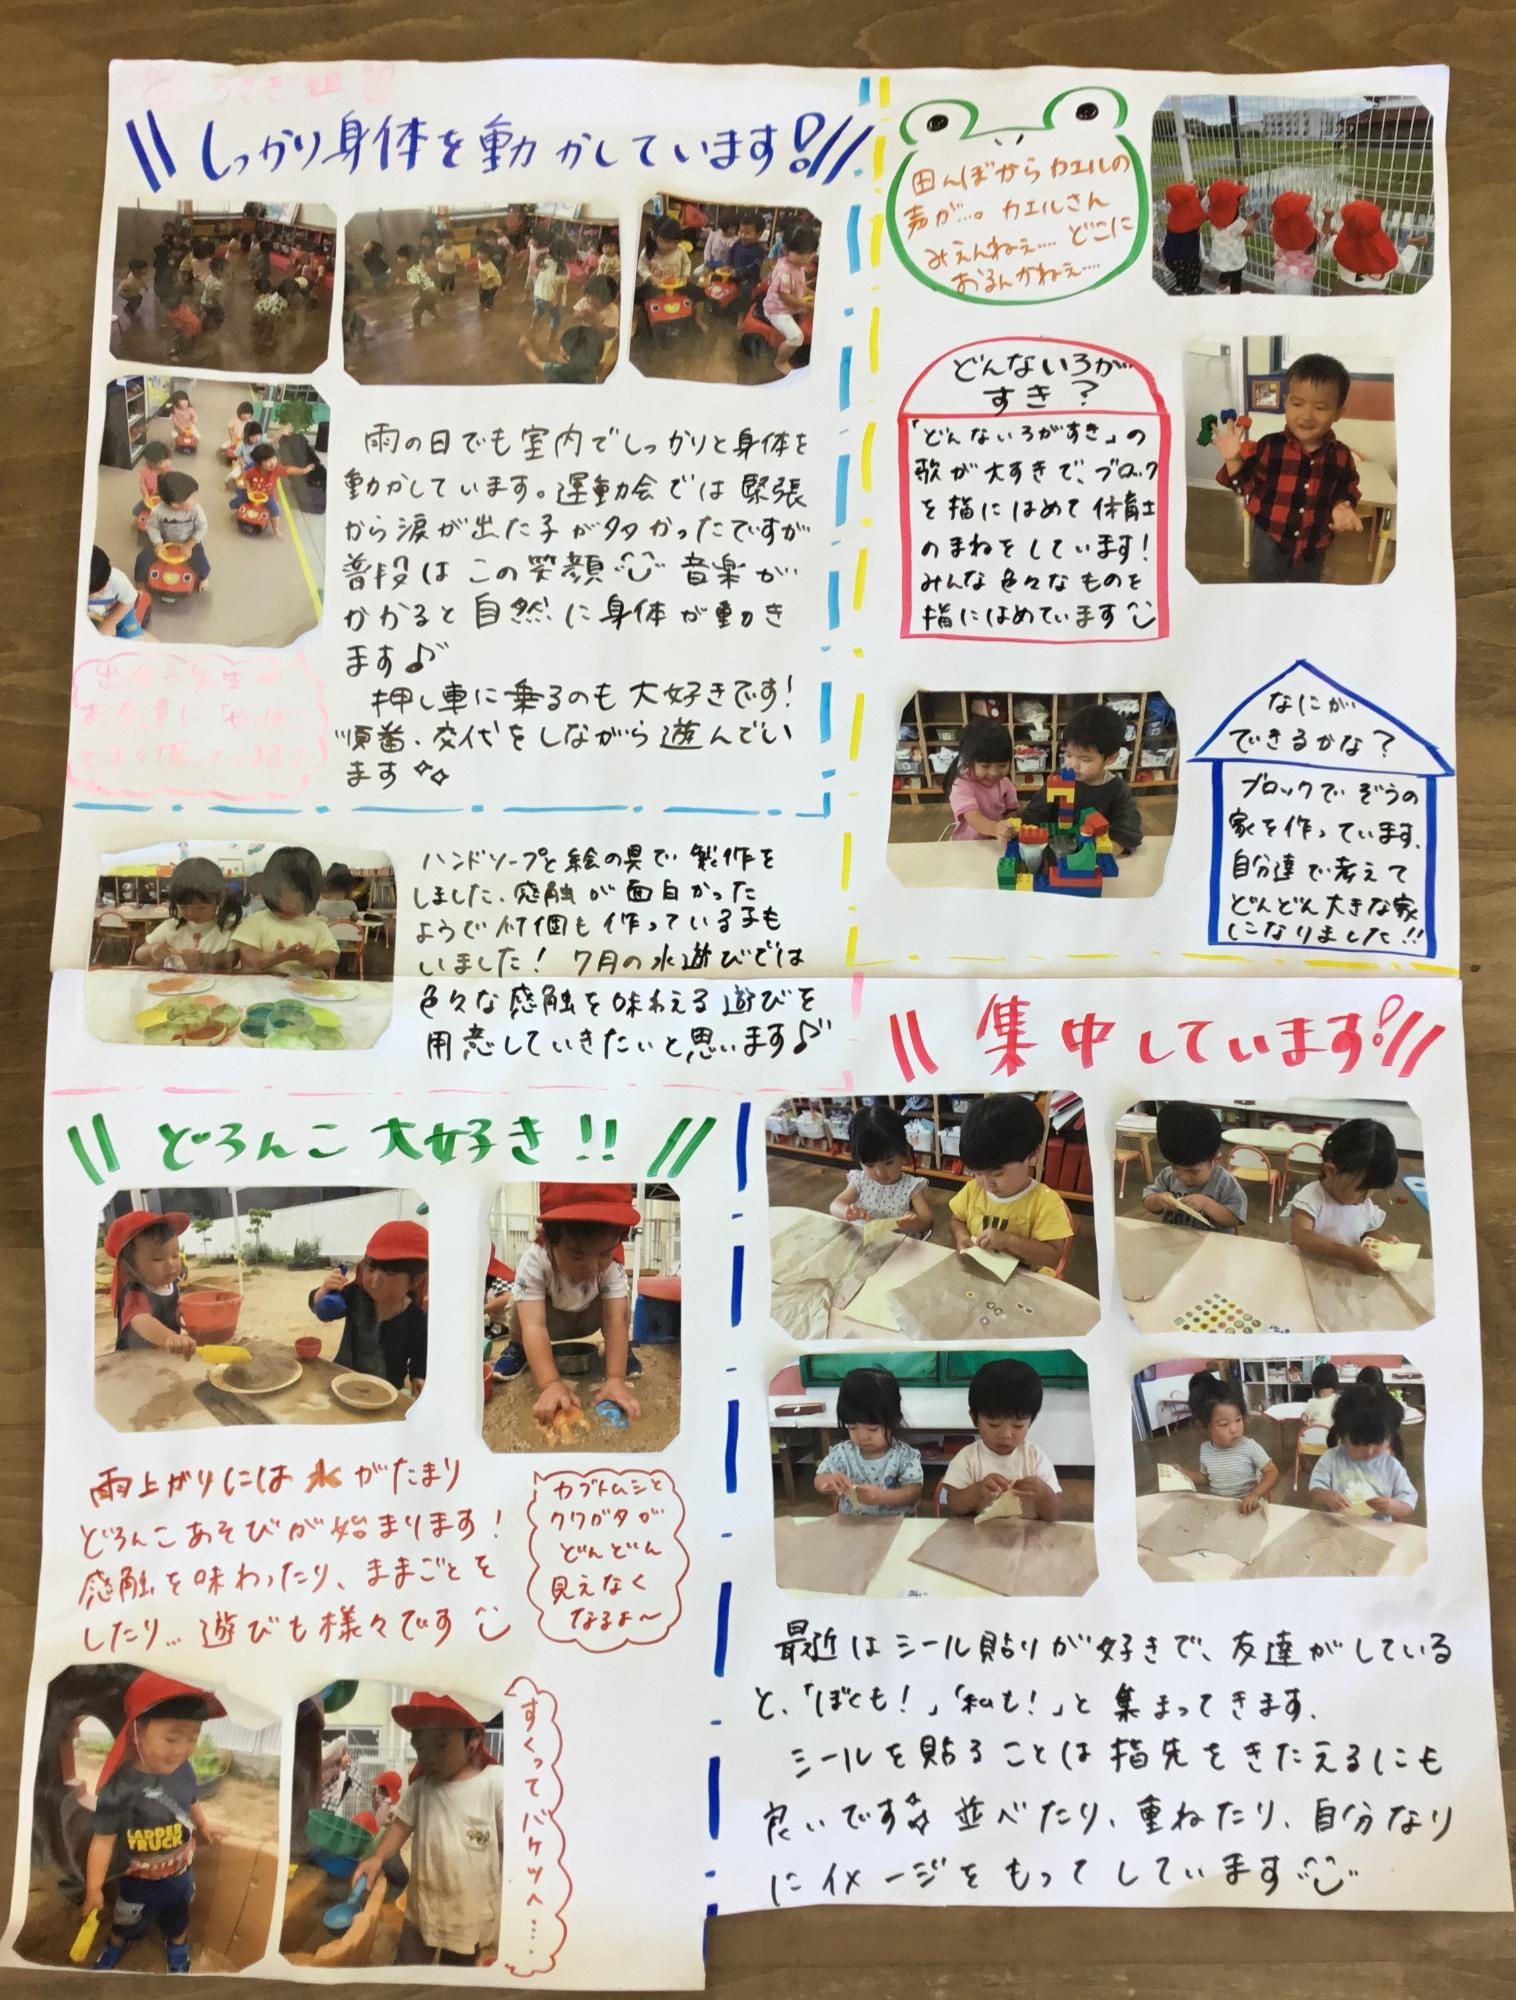 うさぎ組
しっかり身体を動かしています!
雨の日でも室内でしっかりと身体を
動かしています。運動会では緊張
から涙が出た子が多かったですが
普段はこの笑顔 音楽が
かかると自然に身体が動き
ます♪
押し車に乗るのも大好きです!
順番、交代をしながら遊んでい
ます
出会う先生や
お友達に「やっほー」
と手を振っています♪
ハンドソープと絵の具で製作を
しました、感触が面白かった
ようで何個も作っている子も
いました! 7月の水遊びでは
色々な感触を味わえる遊びを
用意していきたいと思います♪
田んぼからカエルの
声が…。カエルさん
みえんねぇ…. どこに
おるんかねぇ….
どんないろが
すき?
「どんないろがすき」の
歌が大すきで、ブロック
を指にはめて体育士
のまねをしています!
みんな色々なものを
指にはめています
なにが
できるかな?
ブロックでぞうの
家を作っています、
自分達で考えて
どんどん大きな家
になりました!!
どろんこ大好き!!
雨上がりには水がたまり
どろんこあそびが始まります!
感触を味わったり、ままごとを
したり… 遊びも様々です
カブトムシと
クワガタが
どんどん
見えなく
なるよ～
LADDER
TRUCK
すくってバケツへ….
集中しています!
最近はシール貼りが好きで、友達がしている
と、「ぼくも!」「私も!」と集まってきます.
シールを貼ることは指先をきたえるにも
良いです 並べたり、重ねたり、自分なり
にイメージをもってしています